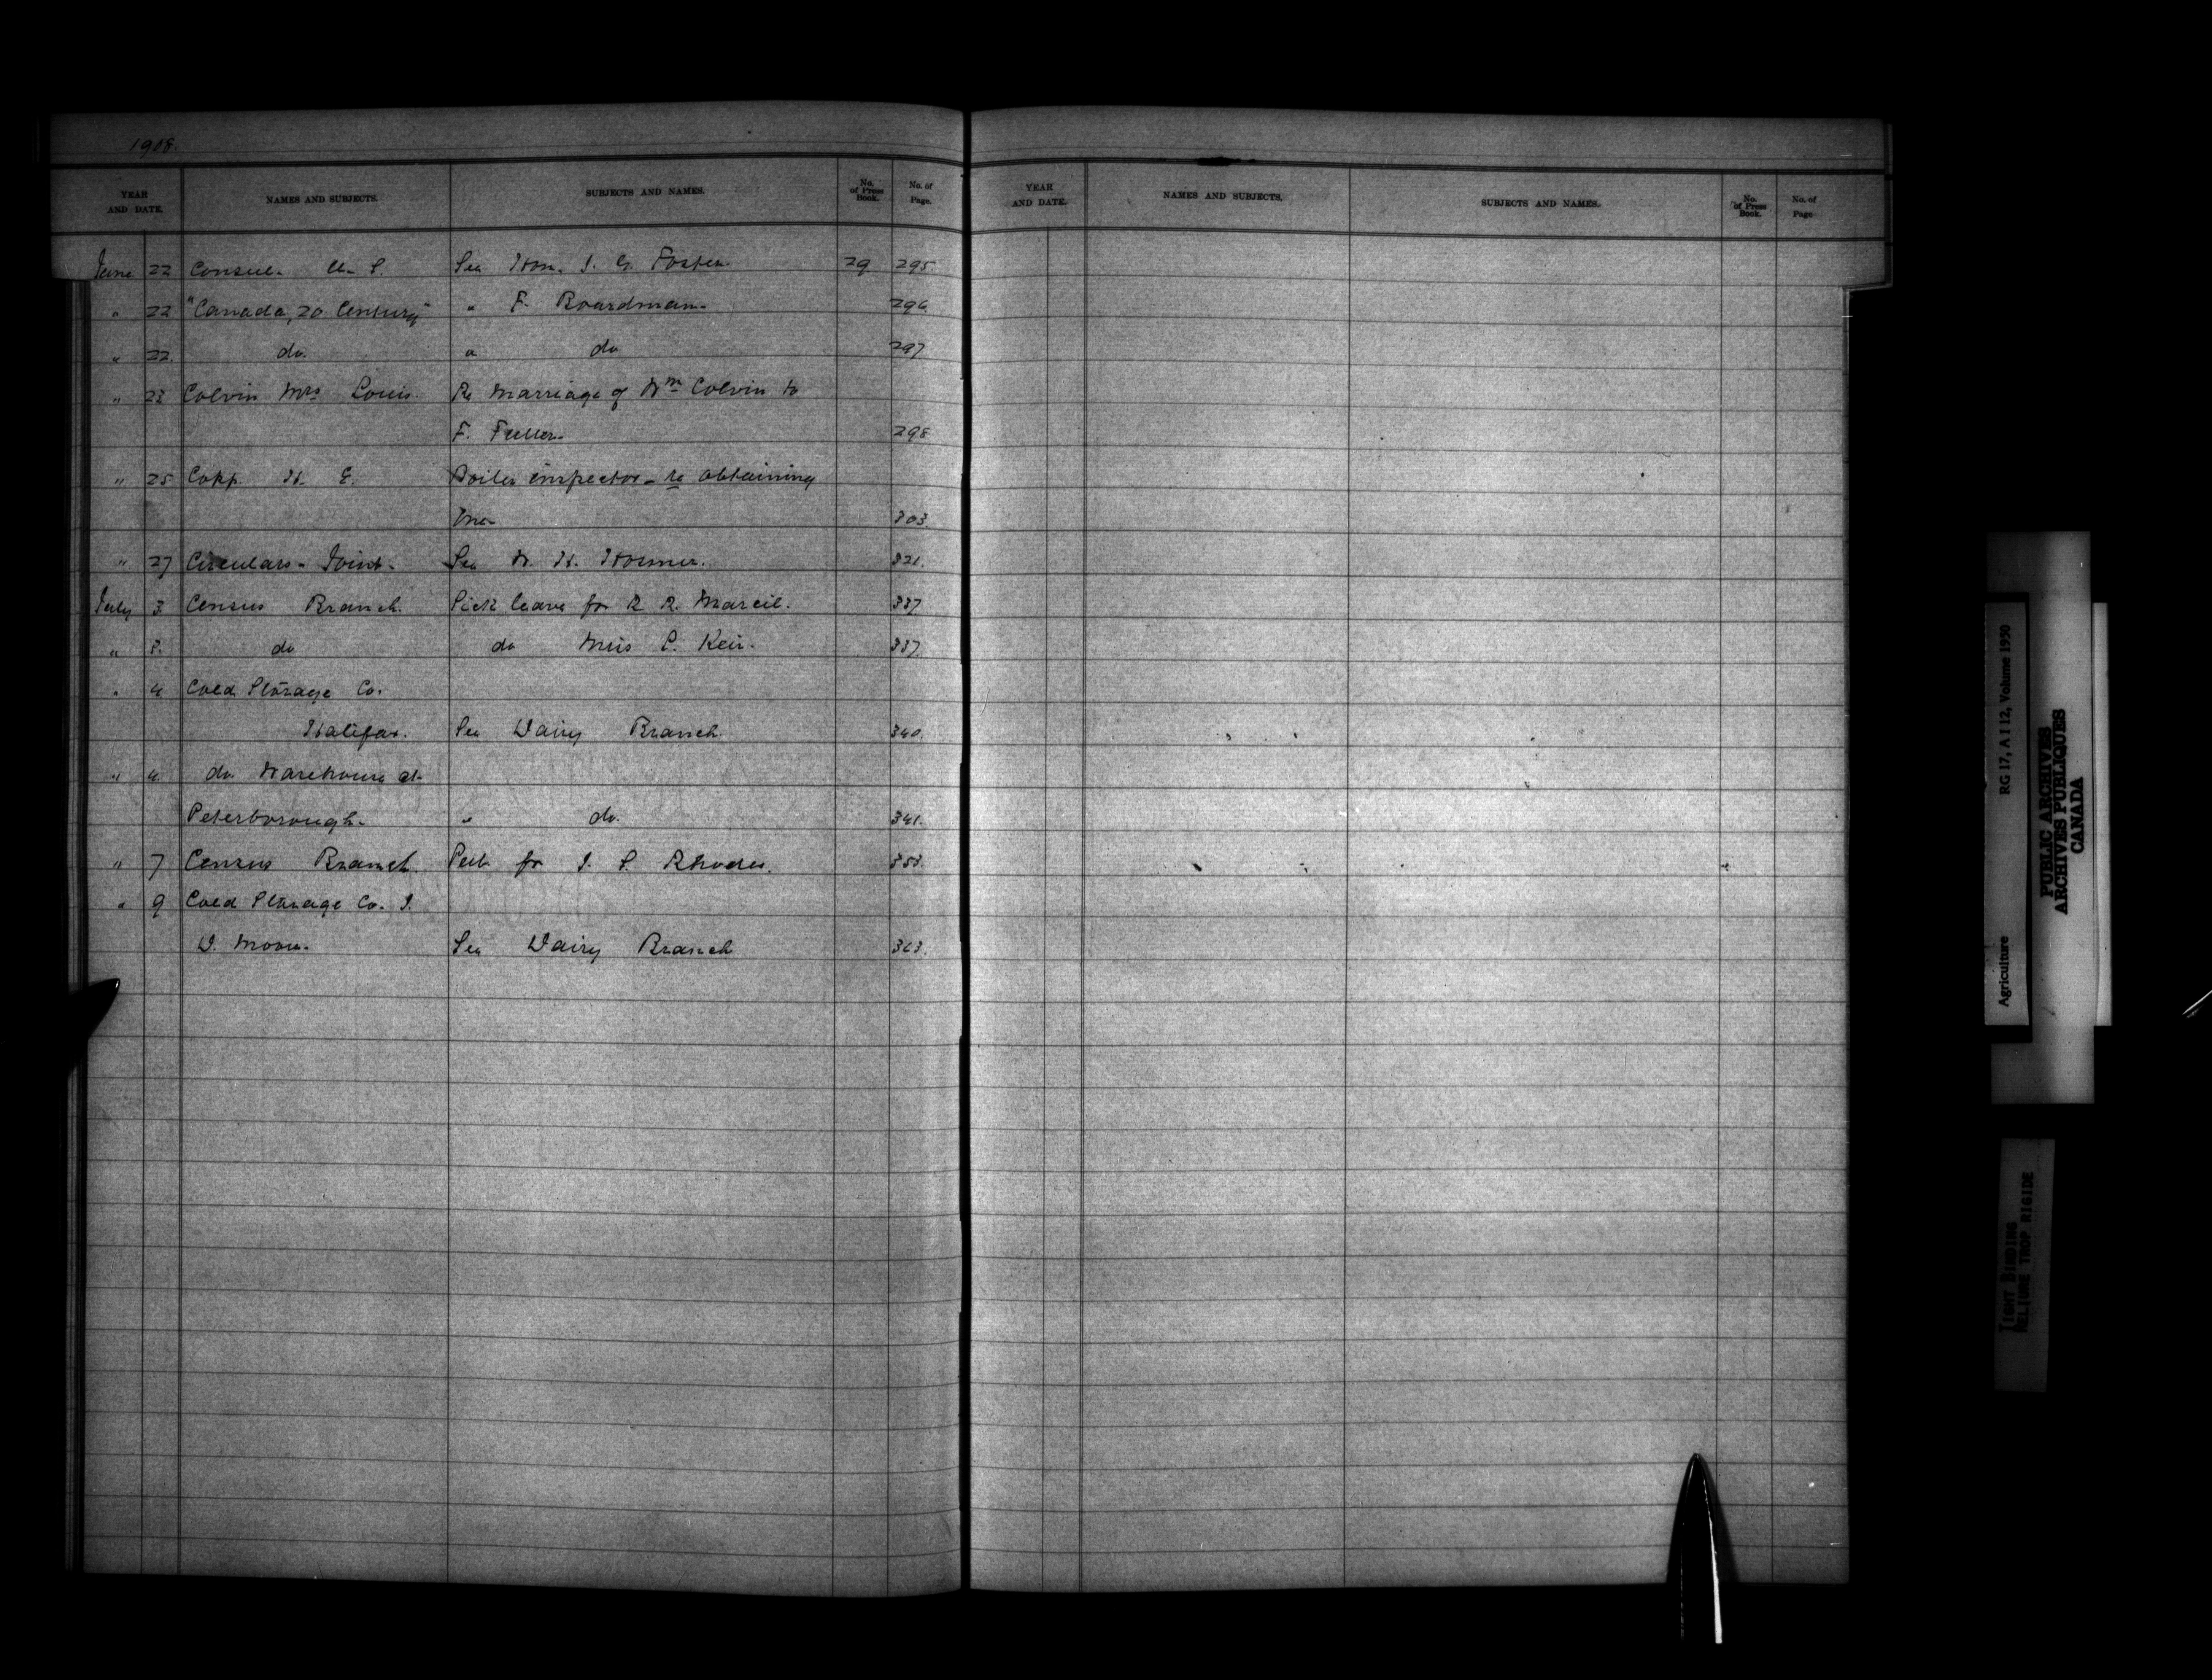 1908.
YEAR AND DATE. NAMES AND SUBJECTS. SUBJECTS AND NAMES. No. of Press Book. No. of Page.
June 22 Consul - U. S. See Hon. J. G. Foster. 29 295
" 22 "Canada, 20 Century" " F. Boardman. 296
" 22 do. " do 297
" 23 Colvin Mrs Louis. Re Marriage of Wm Colvin to
F. Fuller. 298
" 25 Copp. H. E. Boiler inspector - re obtaining
one 303.
" 27 Circulars - Joint - See W. H. 321.
July 3 Census Branch. Sick leave for R. R. Marcil. 337
" 3. do do Miss C. Keir. 337.
" 4 Cold Storage Co.
Halifax. See Dairy Branch. 340.
" 4. do. Warehouse at
Peterborough. " do. 341.
" 7 Census Branch. for J. S. Rhodes. 353.
" 9 Cold Storage Co. J.
D. Moore. See Dairy Branch 363.
YEAR AND DATE. NAMES AND SUBJECTS. SUBJECTS AND NAMES. No. of Press Book. No. of Page
Agriculture RG 17, A I 12, Volume 1950
PUBLIC ARCHIVES
ARCHIVES PUBLIQUES
CANADA
TIGHT BINDING
RELIURE TROP RIGIDE